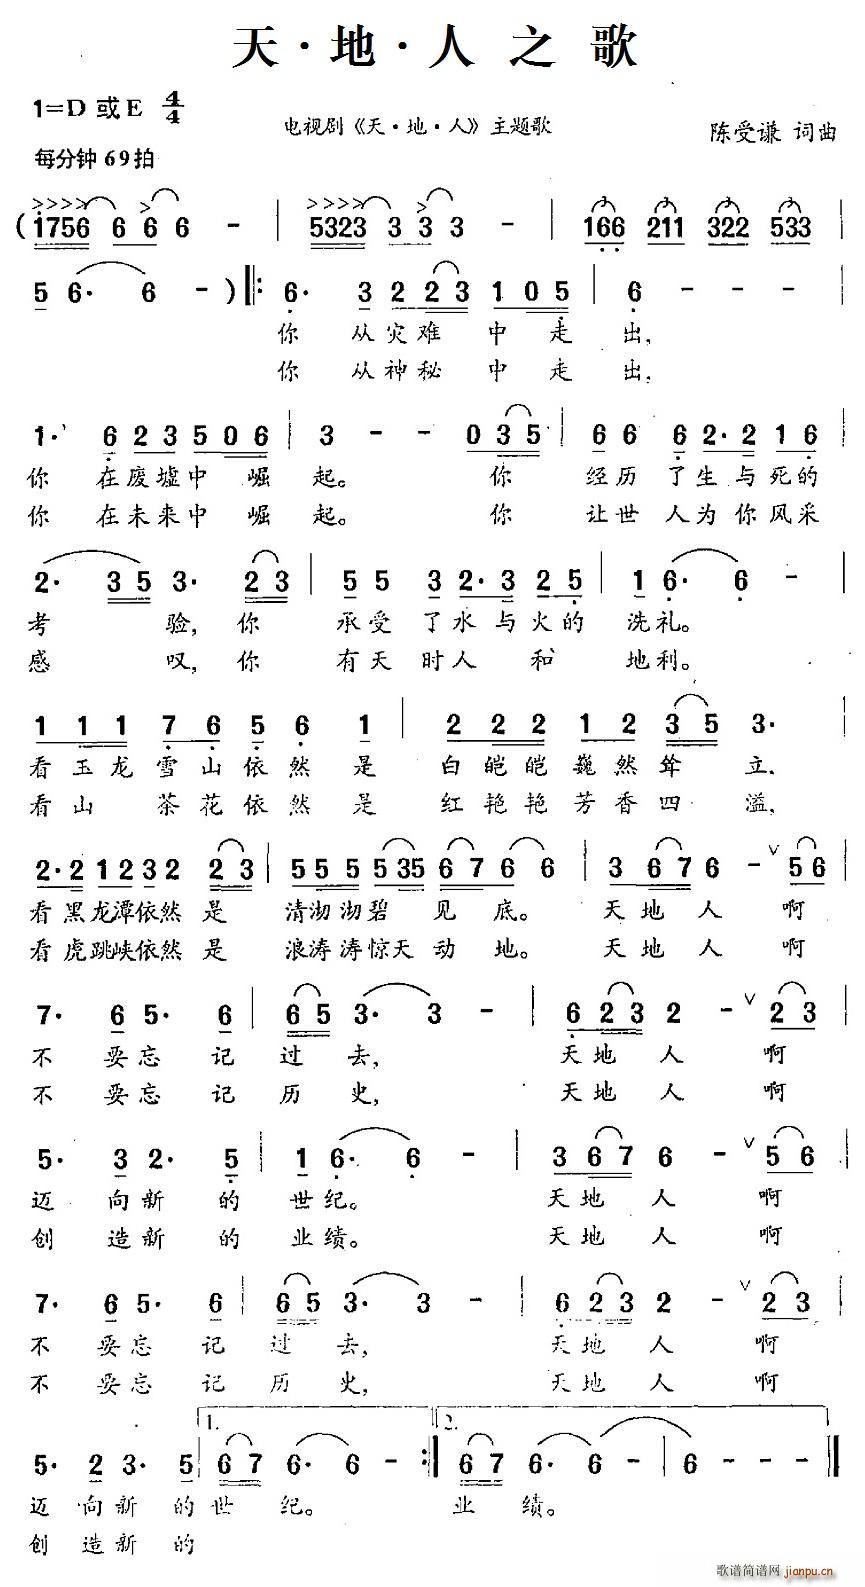 天·地·人之歌
1=D 或 E 4/4
电视剧《天·地·人》主题歌
陈受谦 词曲
每分钟 69 拍
( 1756 6 6 6 - | 5323 3 3 3 - | 166 211 322 533 |
5 6· 6 - ) ‖: 6· 3 2 2 3 1 0 5 | 6 - - - |
你 从灾难 中 走 出,
你 从神秘 中 走 出,
1· 6 2 3 5 0 6 | 3 - - 0 3 5 | 6 6 6 2· 2 1 6 |
你 在废墟中 崛 起。 你 经历 了生与死的
你 在未来中 崛 起。 你 让世 人为你风采
2· 3 5 3· 2 3 | 5 5 3 2· 3 2 5 | 1 6· 6 - |
考 验, 你 承受 了水与火的 洗礼。
感 叹, 你 有天 时人 和 地利。
1 1 1 7 6 5 6 1 | 2 2 2 1 2 3 5 3·
看玉龙雪山依然是 白皑皑巍然耸 立,
看山 茶花依然是 红艳艳芳香四 溢,
2· 2 1 2 3 2 2 3 | 5 5 5 5 5 3 5 6 7 6 6 | 3 6 7 6 - ∨ 5 6
看黑龙潭依然是 清沏沏碧 见 底。 天地人 啊
看虎跳峡依然是 浪涛涛惊天动 地。 天地人 啊
7· 6 5· 6 | 6 5 3· 3 - | 6 2 3 2 - ∨ 2 3
不 要忘 记 过 去, 天地 人 啊
不 要忘 记 历 史, 天地 人 啊
5· 3 2· 5 | 1 6· 6 - | 3 6 7 6 - ∨ 5 6
迈 向新 的 世纪。 天地 人 啊
创 造新 的 业绩。 天地 人 啊
7· 6 5· 6 | 6 5 3· 3 - | 6 2 3 2 - ∨ 2 3
不 要忘 记 过 去, 天地 人 啊
不 要忘 记 历 史, 天地 人 啊
1. 2.
5· 2 3· 5 | 6 7 6· 6 - :‖ 6 7 6· 6 - | 6 - - - ‖
迈 向新 的世 纪。 业 绩。
创 造新 的
歌谱简谱网
jianpu.cn